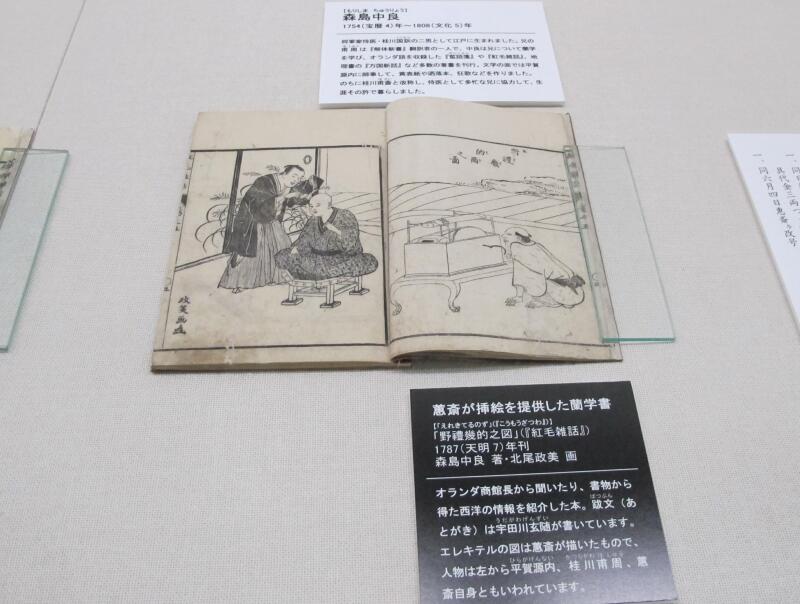 【もりしま　ちゅうりょう】
森島中良
1754（宝暦 4）年～1808（文化 5）年
将軍家侍医・桂川国訓の二男として江戸に生まれました。兄の
甫周は『解体新書』翻訳者の一人で、中良は兄について蘭学
を学び、オランダ語を収録した『蛮語箋』や『紅毛雑話』、地
理書の『万国新話』など多数の著書を刊行。文学の面では平賀
源内に師事して、黄表紙や洒落本、狂歌などを作りました。
のちに桂川甫斎と改称し、侍医として多忙な兄に協力して、生
涯その許で暮らしました。
政美画
蕙斎が挿絵を提供した蘭学書
【「えれきてるのず」（『こうもうざつわ』）】
「野禮幾的之図」（『紅毛雑話』）
1787（天明 7）年刊
森島中良 著・北尾政美 画
オランダ商館長から聞いたり、書物から
得た西洋の情報を紹介した本。跋文（あ
とがき）は宇田川玄随が書いています。
エレキテルの図は蕙斎が描いたもので、
人物は左から平賀源内、桂川甫周、蕙
斎自身ともいわれています。
一、同六月四日恵斎ヶ改号